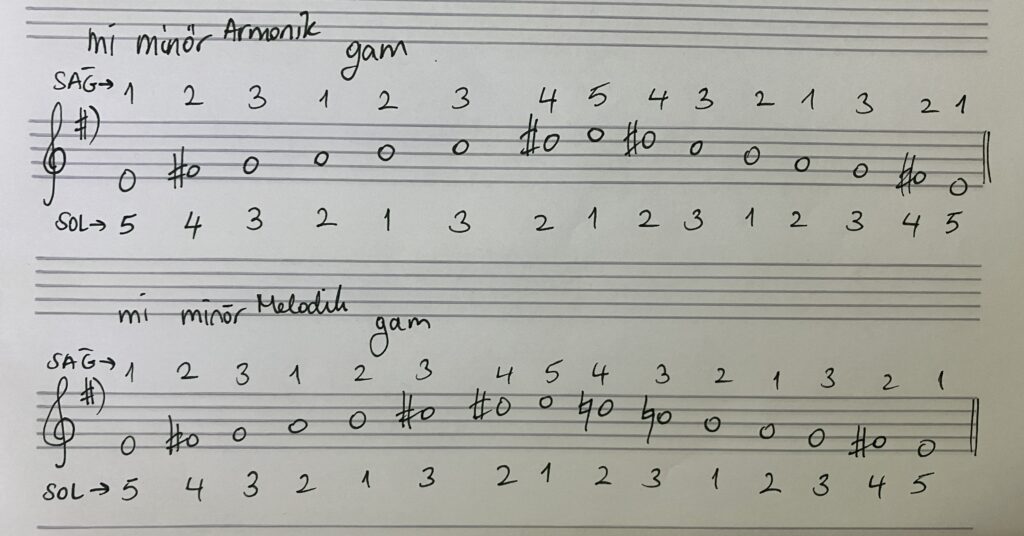 mi minör Armonik gam
SAĞ→ 1 2 3 1 2 3 4 5 4 3 2 1 3 2 1
SOL→ 5 4 3 2 1 3 2 1 2 3 1 2 3 4 5
mi minör Melodik gam
SAĞ→ 1 2 3 1 2 3 4 5 4 3 2 1 3 2 1
SOL→ 5 4 3 2 1 3 2 1 2 3 1 2 3 4 5